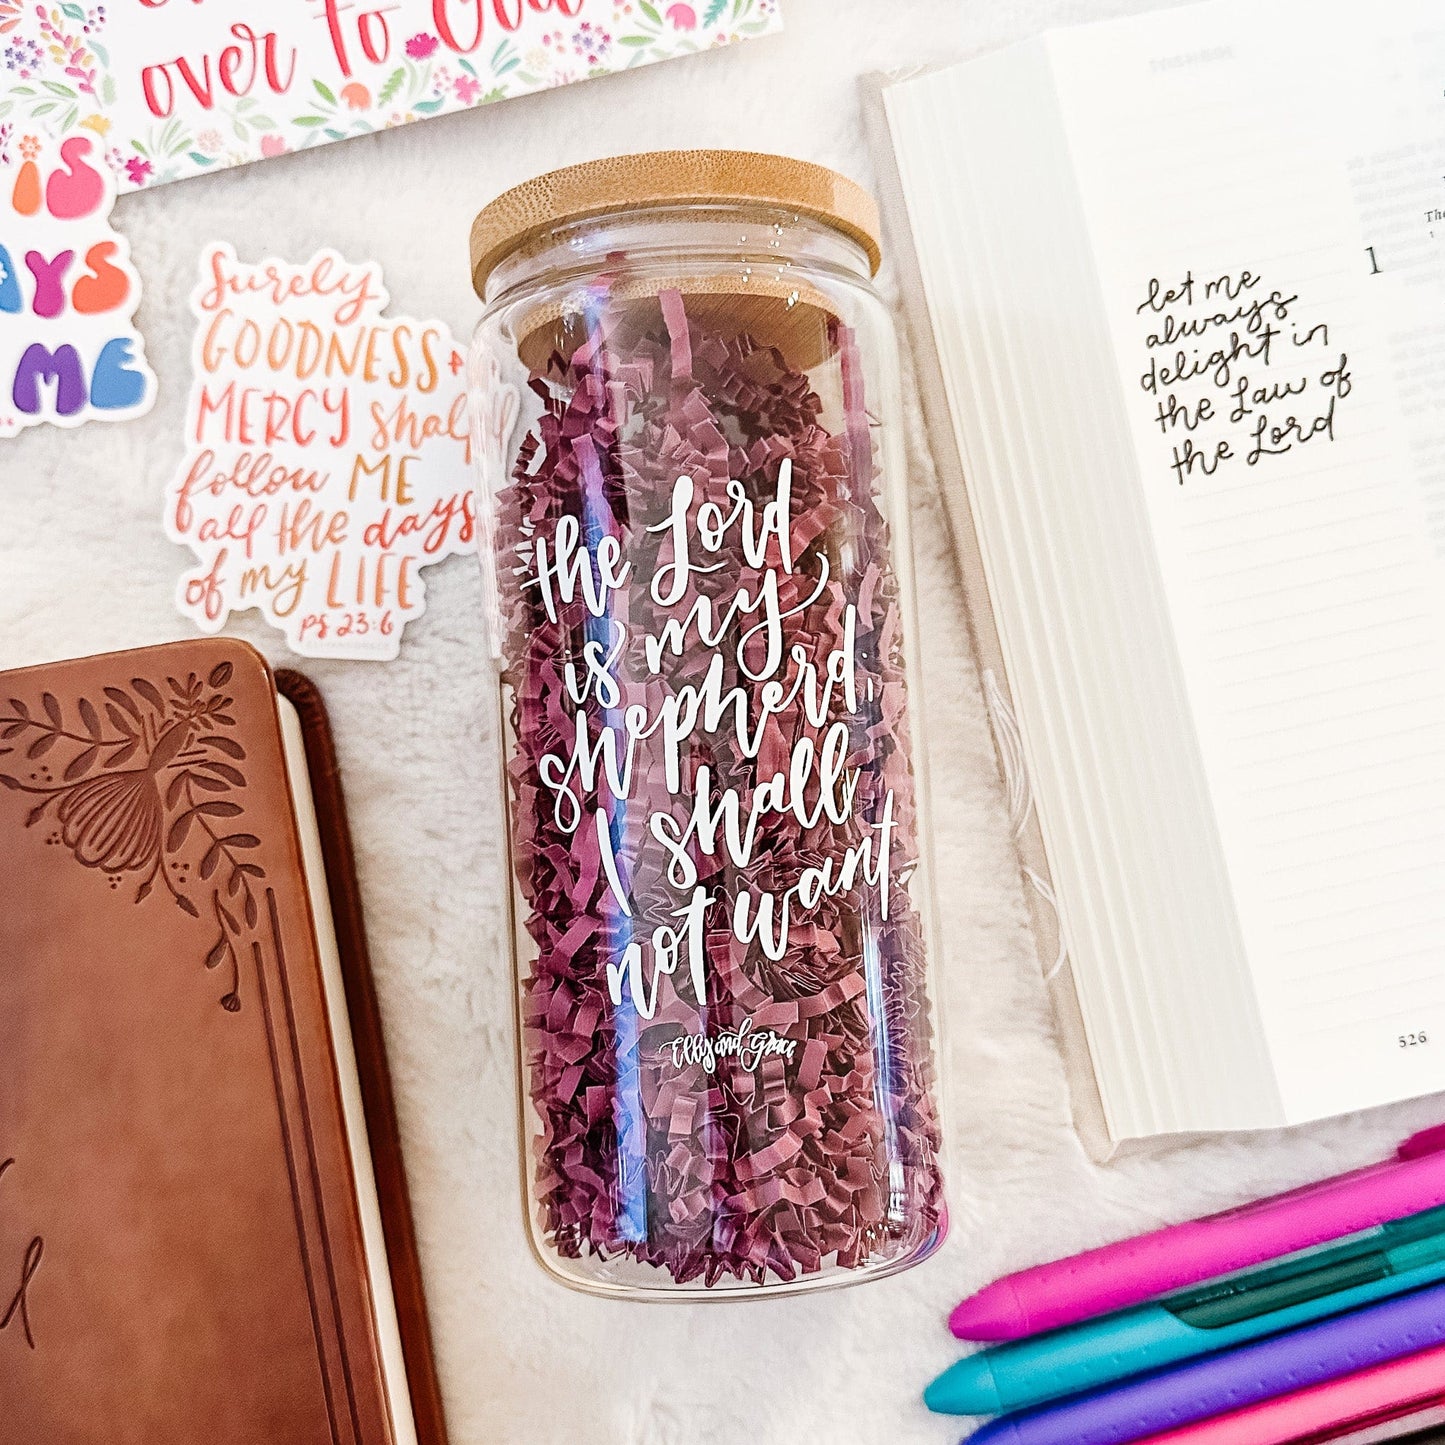 over to God
is
AYS
ME
Surely
GOODNESS +
MERCY shall
follow ME
all the days
of my LIFE
PS 23:6
the Lord
is my
shepherd,
I shall
not want
Elly and Grace
let me
always
delight in
the Law of
the Lord
1
The
1
526